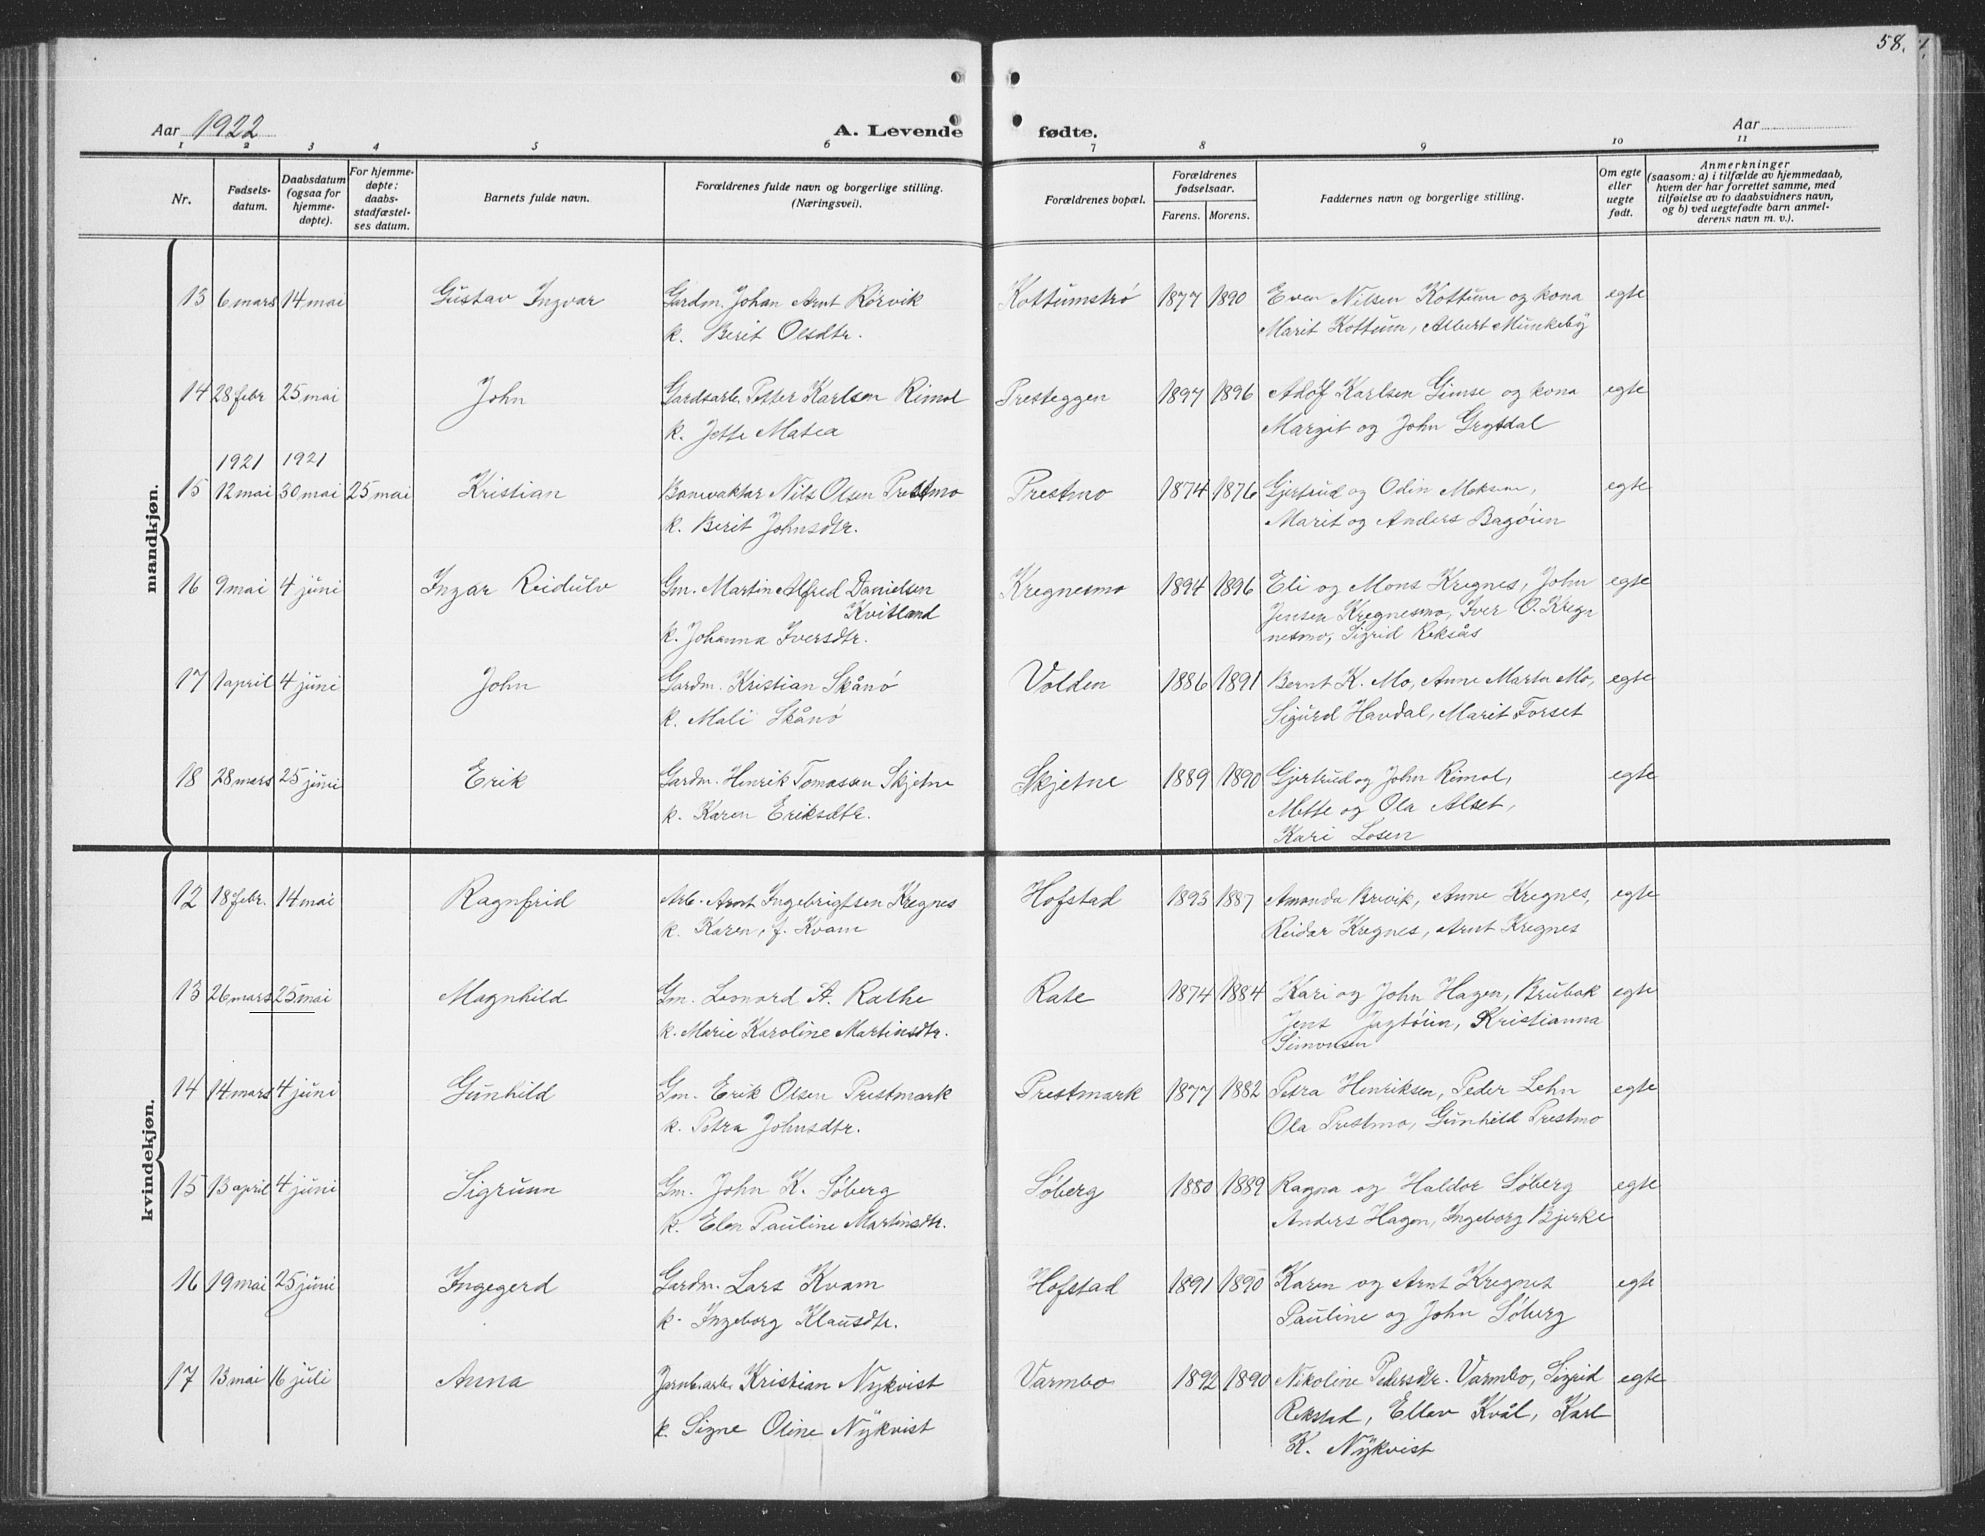 58.
Aar 1922
A. Levende fødte.
Aar
1 2 3 4 5 6 7 8 9 10 11
Nr.
Fødsels-
datum.
Daabsdatum
(ogsaa for
hjemme-
døpte).
For hjemme-
døpte:
daabs-
stadfæstel-
ses datum.
Barnets fulde navn.
Forældrenes fulde navn og borgerlige stilling.
(Næringsvei).
Forældrenes bopæl.
Forældrenes
fødselsaar.
Farens. Morens.
Faddernes navn og borgerlige stilling.
Om egte
eller
uegte
født.
Anmerkninger
(saasom: a) i tilfælde av hjemmedaab,
hvem der har forrettet samme, med
tilføielse av to daabsvidners navn,
og b) ved uegtefødte barn anmel-
derens navn m. v.).
mandkjøn.
13 6 mars 14 mai Gustav Ingvar Gardm. Johan Arnt Rörvik Kottumstrø 1877 1890 Even Nilsen Kottum og kona egte
k. Berit Olsdtr. Marit Kottum, Albert Munkeby
14 28 febr 25 mai John Gardsarb. Petter Karlsen Rimol Presteggen 1897 1896 Adolf Karlsen Gimse og kona egte
k. Jette Matea Margit og John Grytdal
1921 1921
15 12 mai 30 mai 25 mai Kristian Banevaktar Nils Olsen Prestmo Prestmo 1874 1876 Gjertrud og Odin Moksnes, egte
k. Berit Johnsdtr. Marit og Anders Bagøien
16 9 mai 4 juni Ingar Reidulv Gm. Martin Alfred Danielsen Kregnesmo 1894 1896 Eli og Mons Kregnes, John egte
Kvitland Jensen Kregnesmo, Iver O. Kregn
k. Johanna Iversdtr. nesmo, Sigrid Reksås
17 1 april 4 juni John Gardm. Kristian Skånø Volden 1886 1891 Bernt K. Mo, Anne Marta Mo, egte
k. Mali Skånø Sigurd Havdal, Marit Forset
18 28 mars 25 juni Erik Gardm. Henrik Tomassen Skjetne Skjetne 1889 1890 Gjertrud og John Rimol, egte
k. Karen Eriksdtr. Mette og Ola Alset,
Kari Losen
kvindekjøn.
12 18 febr. 14 mai Ragnfrid Arb. Arnt Ingebrigtsen Kregnes Hofstad 1893 1887 Amanda Brevik, Anne Kregnes, egte
k. Karen, f. Kvam Reidar Kregnes, Arnt Kregnes
13 26 mars 25 mai Magnhild Gm. Leonard A. Rathe Rate 1874 1884 Kari og John Hagen, Brubak egte
k. Marie Karoline Martinsdtr. Jens Jagtøien, Kristianna
Simonsen
14 14 mars 4 juni Gunhild Gm. Erik Olsen Prestmark Prestmark 1877 1882 Petra Henriksen, Peder Lehn egte
k. Petra Johnsdtr. Ola Prestmo, Gunhild Prestmo
15 13 april 4 juni Sigrunn Gm. John K. Søberg Søberg 1880 1889 Ragna og Haldor Søberg egte
k. Elen Pauline Martinsdtr. Anders Hagen, Ingeborg Bjerke
16 19 mai 25 juni Ingegerd Gardm. Lars Kvam Hofstad 1891 1890 Karen og Arnt Kregnes egte
k. Ingeborg Klausdtr. Pauline og John Søberg
17 13 mai 16 juli Anna Jarnb.arb. Kristian Nykvist Varmbo 1892 1890 Nikoline Pedersdtr. Varmbo, Sigrid egte
k. Signe Oline Nykvist Rekstad, Ellev Kvål, Karl
K. Nykvist